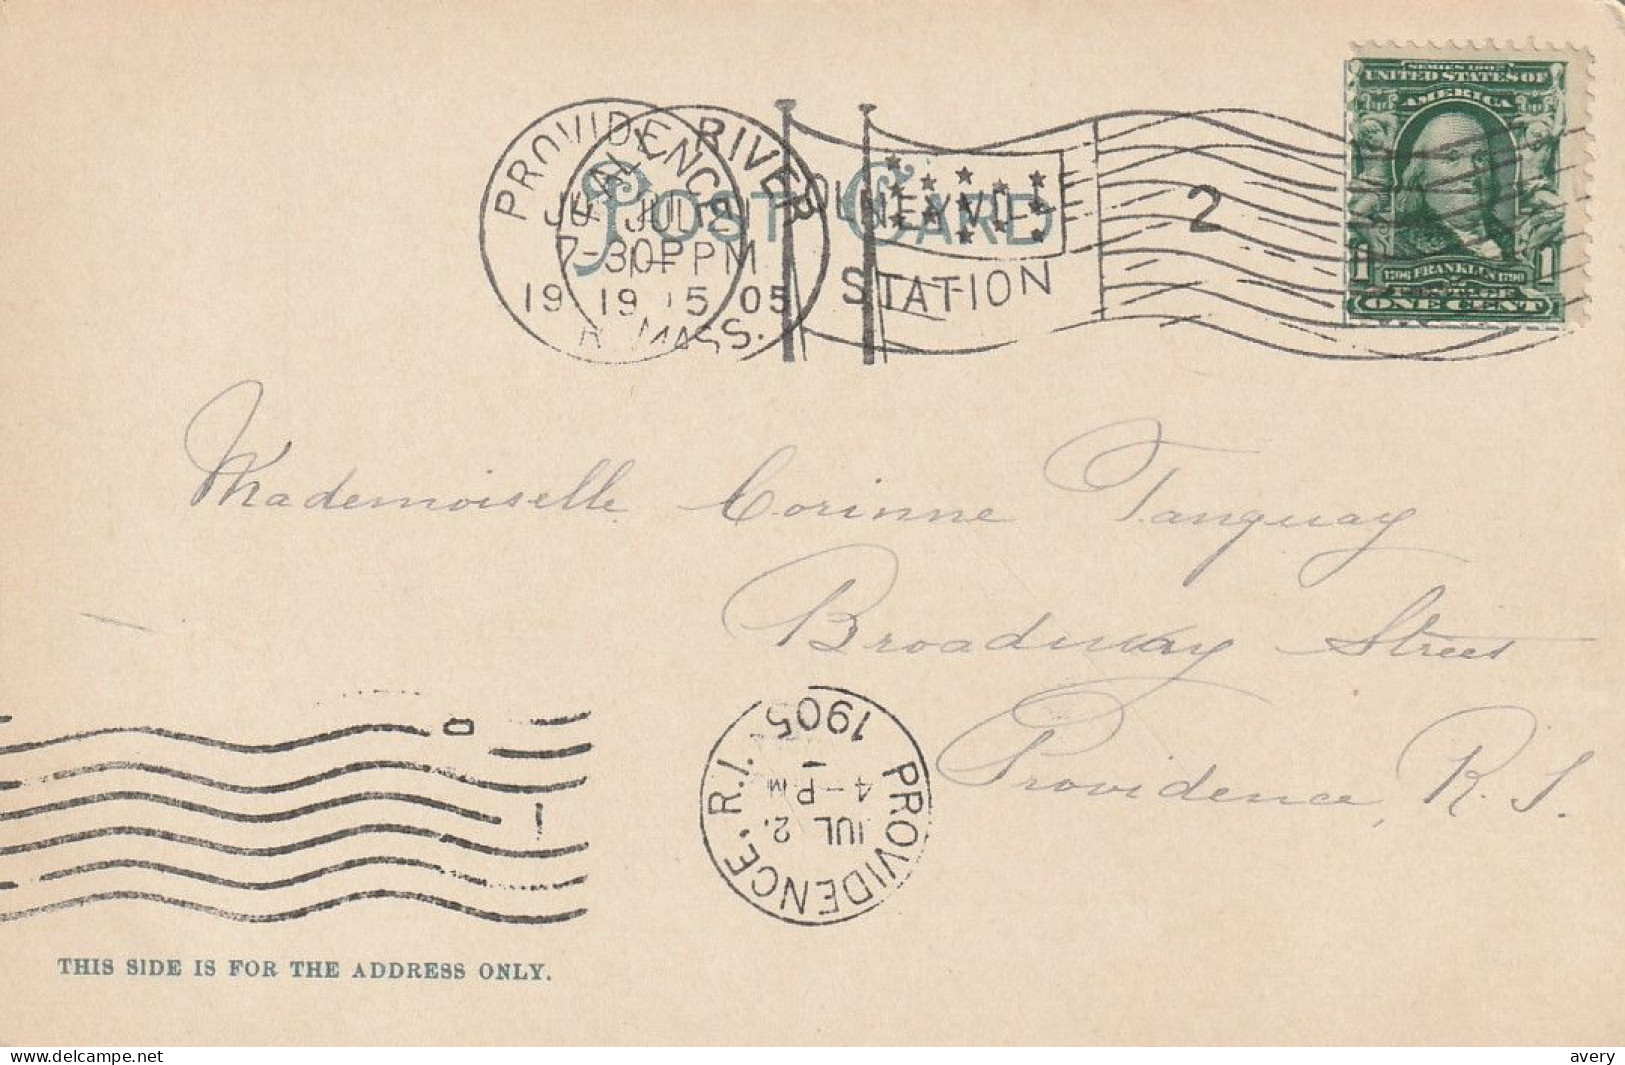 POST CARD
SERIES 1902
UNITED STATES OF
AMERICA
1706 FRANKLIN 1790
1 1
ONE CENT
PROVIDENCE
FALL RIVER
JUL 1
7-30P PM
19 05
MASS.
OLNEYVILLE
STATION
2
Mademoiselle Corinne Tanguay
Broadway Street
Providence, R. I.
PROVIDENCE, R.I.
JUL 2
4-PM
1905
THIS SIDE IS FOR THE ADDRESS ONLY.
www.delcampe.net
avery